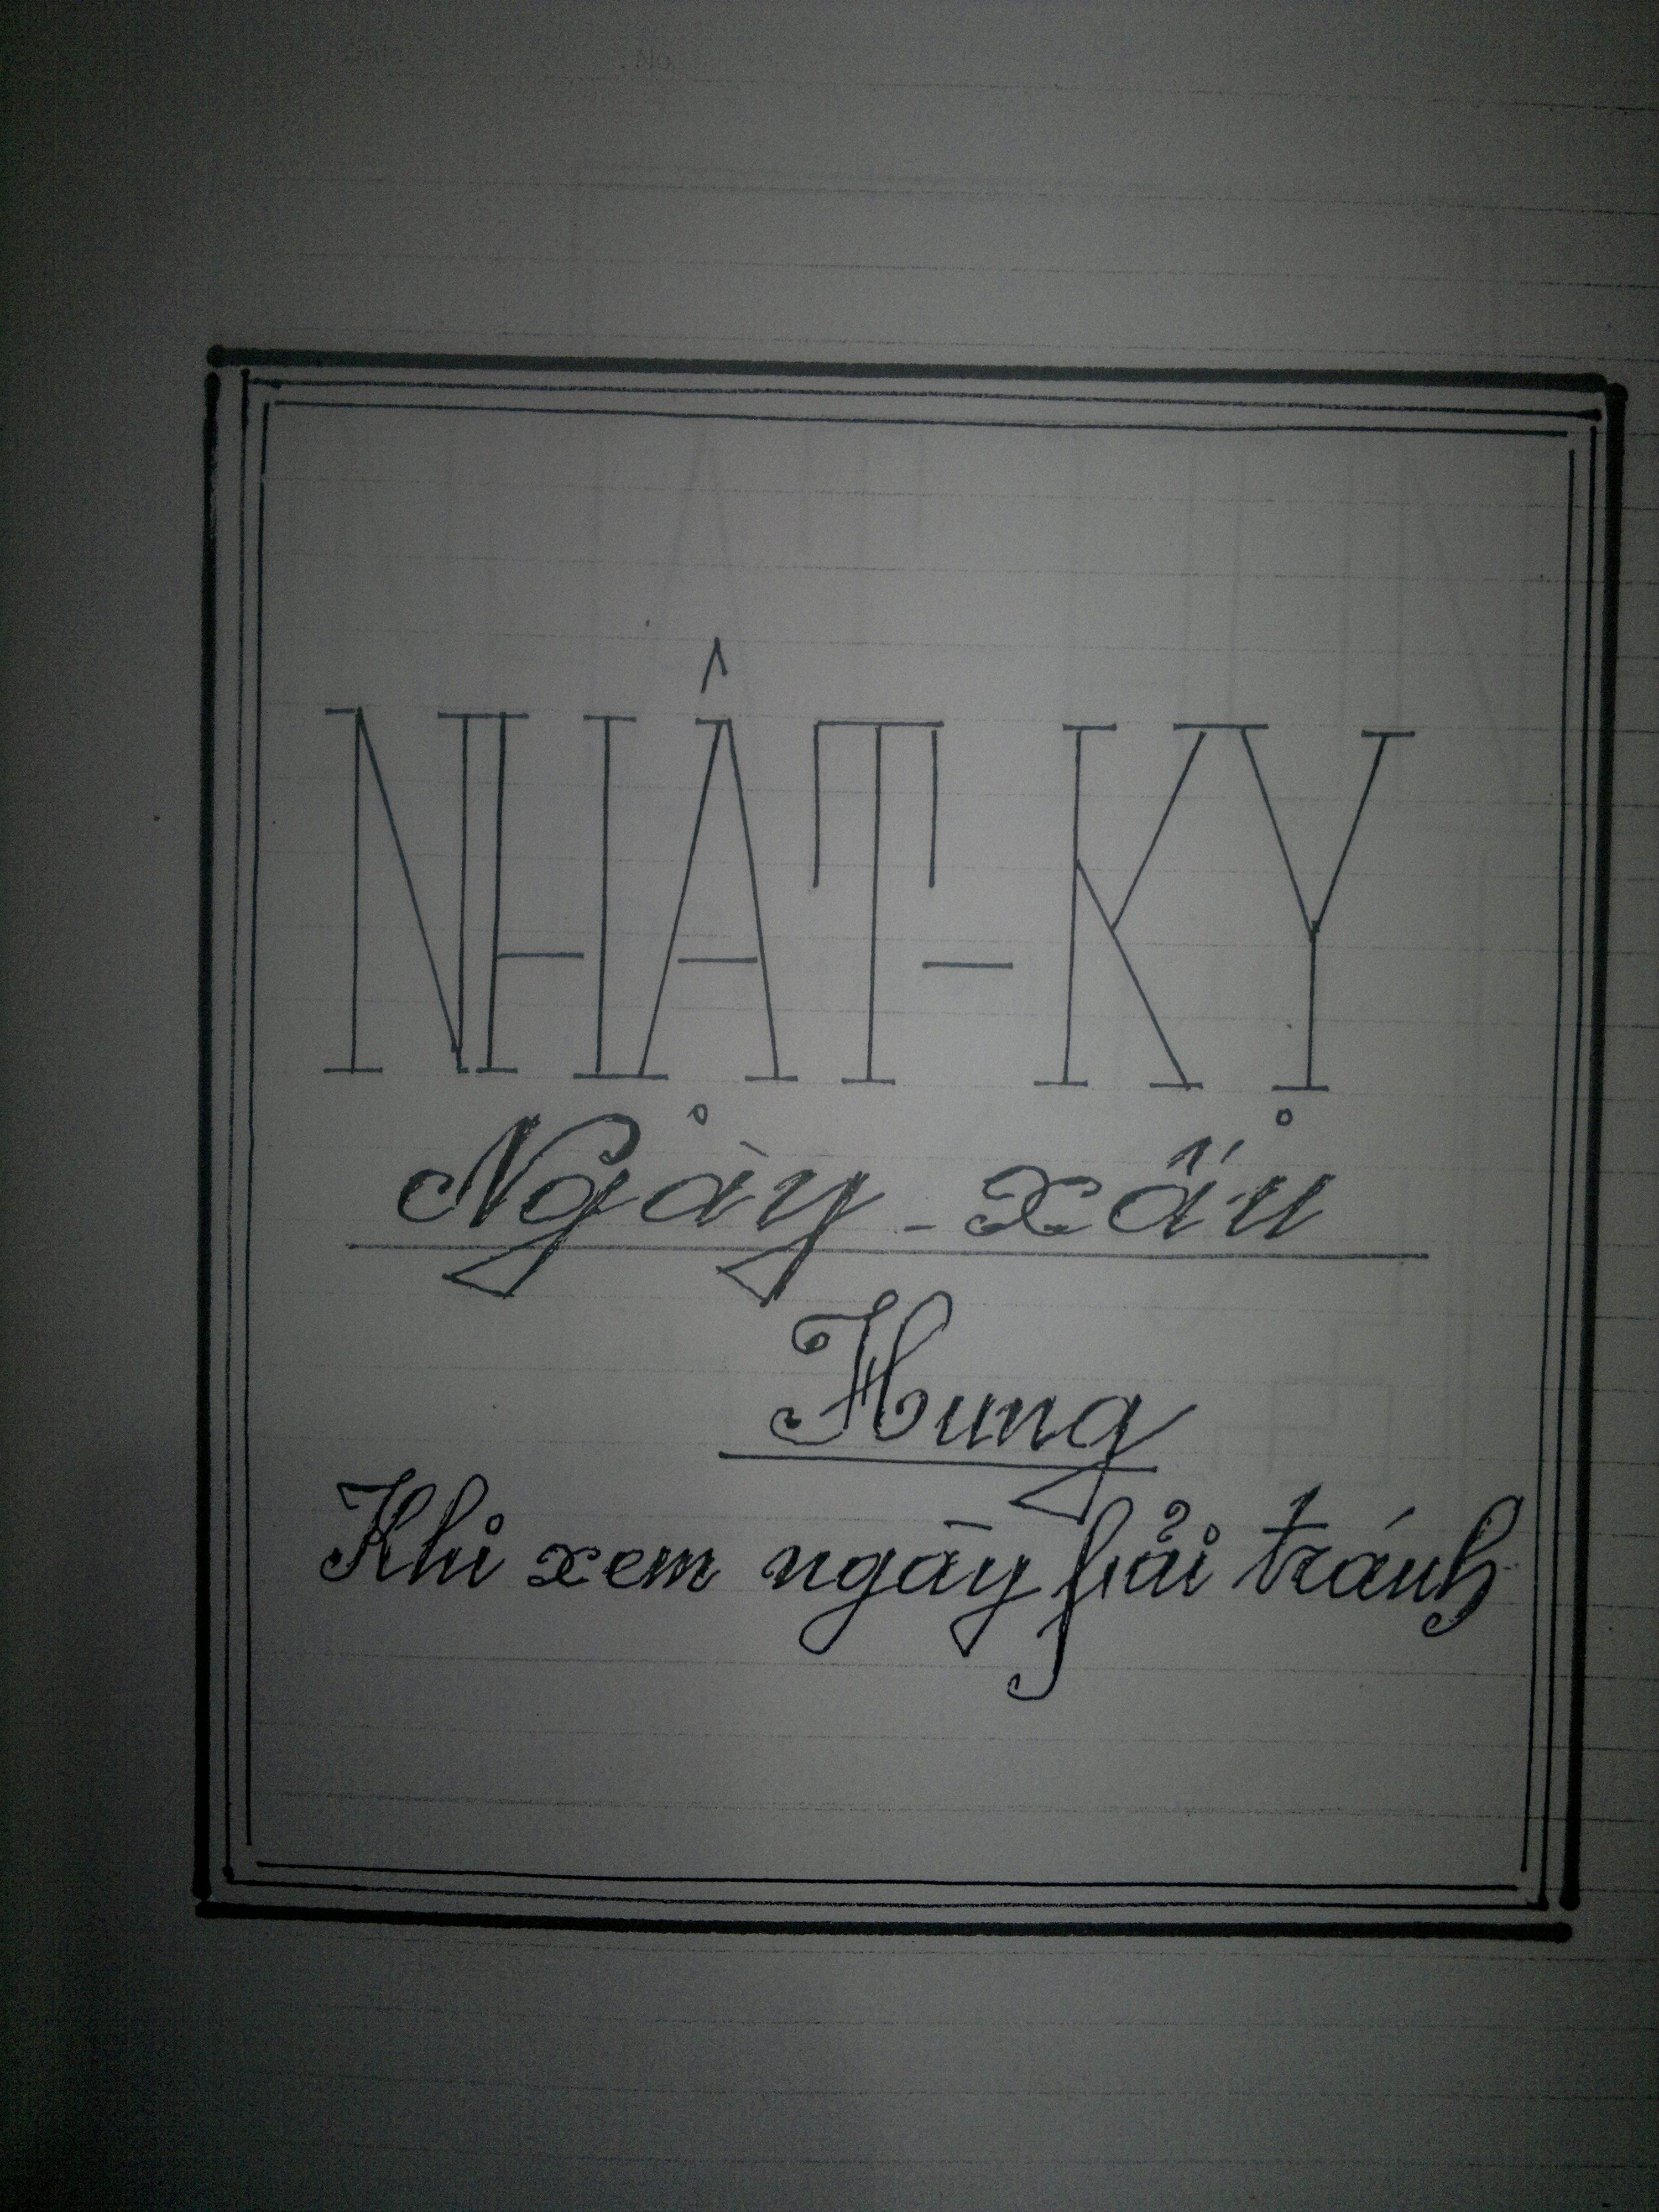 NHẬT-KỴ
Ngày - xấu
Hung
Khi xem ngày fải tránh